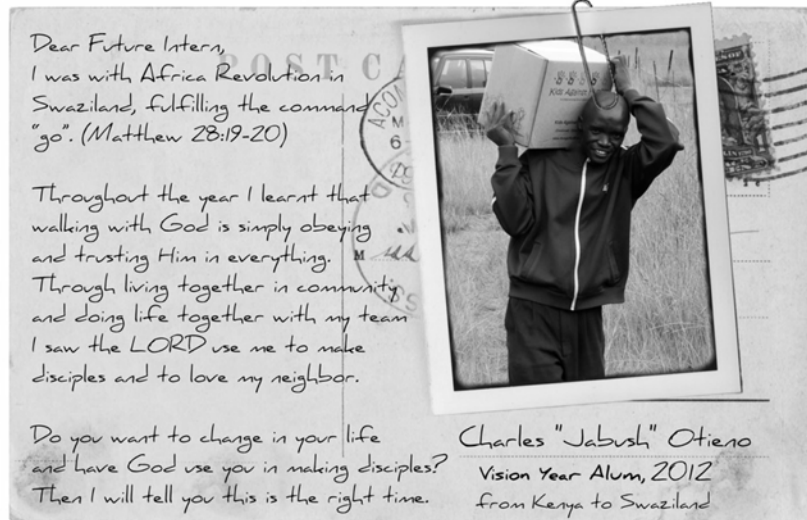 Dear Future Intern,
I was with Africa Revolution in
Swaziland, fulfilling the command
"go". (Matthew 28:19-20)
Throughout the year I learnt that
walking with God is simply obeying
and trusting Him in everything.
Through living together in community
and doing life together with my team
I saw the LORD use me to make
disciples and to love my neighbor.
Do you want to change in your life
and have God use you in making disciples?
Then I will tell you this is the right time.
POST CA
Kids Against
Charles "Jabush" Otieno
Vision Year Alum, 2012
from Kenya to Swaziland